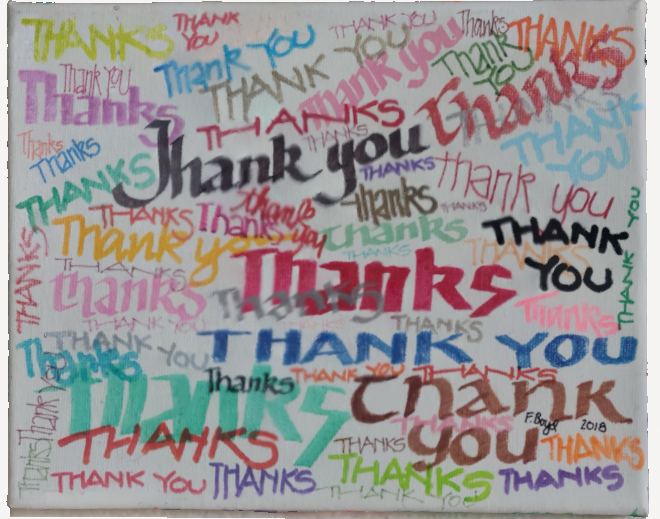 THANKS
THANK YOU
THANK YOU
THANK YOU
Thanks
THANKS
Thank You
Thank YOU
THANK YOU
Thank you
Thank You
Thanks
Thanks
THANKS
THANKS
THANK YOU
Thanks
Thanks
THANKS
Thank you
THANKS
Thank you
THANKS
Thanks
THANKS
THANKS
Thanks
Thank you
THANK YOU
THANK YOU
Thank you
Thanks
THANKS
THANKS
THANKS
THANKS
Thanks
Thanks
Thanks
Thanks
THANK YOU
THANKS
THANK YOU
THANK YOU
Thanks
Thanks
Thanks
THANK YOU
THANKS
Thank you
F. Boyd 2018
Thank You
Thanks
THANKS
THANKS
THANKS
THANKS
THANK YOU
THANKS
THANKS
THANK YOU
THANKS